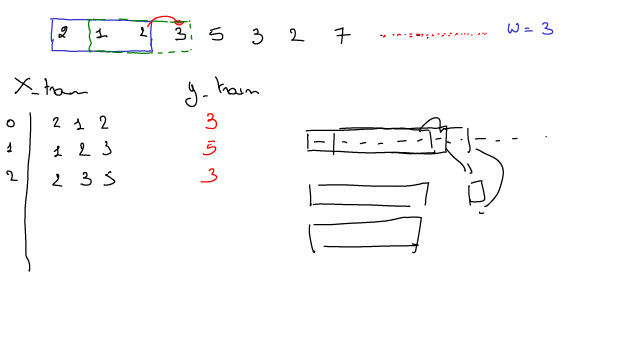 2 1 2 3 5 3 2 7 .................. w = 3
X_train y_train
0 2 1 2 3
1 1 2 3 5
2 2 3 5 3